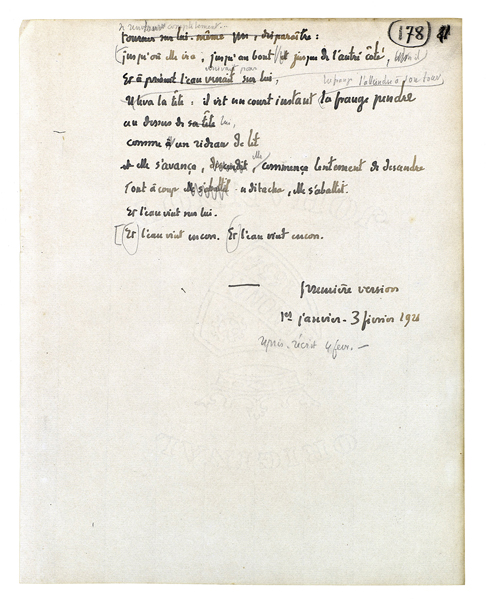 178
se renversant complètement
tourner sur lui-même puis, disparaître :
jusqu'où elle ira, jusqu'au bout et jusque de l'autre côté,
venait pas
Et à présent l'eau venait sur lui.
l'attendre à son tour
leva la tête : il est un court instant la frange pendre
au dessus de sa tête lui,
comme un rideau de lit
et elle s'avança, descendit, elle commence lentement de descendre
Tout à coup elle s'abattit se détache, elle s'abattit.
Et l'eau vint sur lui.
[Et l'eau vint encore. Et l'eau vint encore.
— première version
1er janvier - 3 février 1921
récrit 4 févr. —